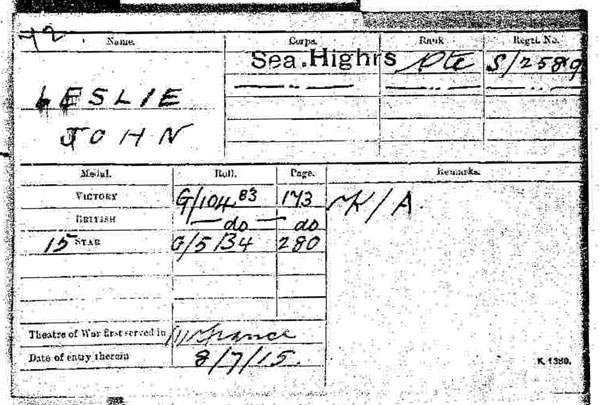 42.
Name. Corps. Rank Regtl. No.
Sea. Highrs Pte S/2589
LESLIE
JOHN
Medal. Roll. Page. Remarks.
VICTORY G/104 B3 173 K/A.
BRITISH — do — do
15 STAR G/5/B4 280
Theatre of War first served in (1) France
Date of entry therein 8/7/15.
K. 1380.